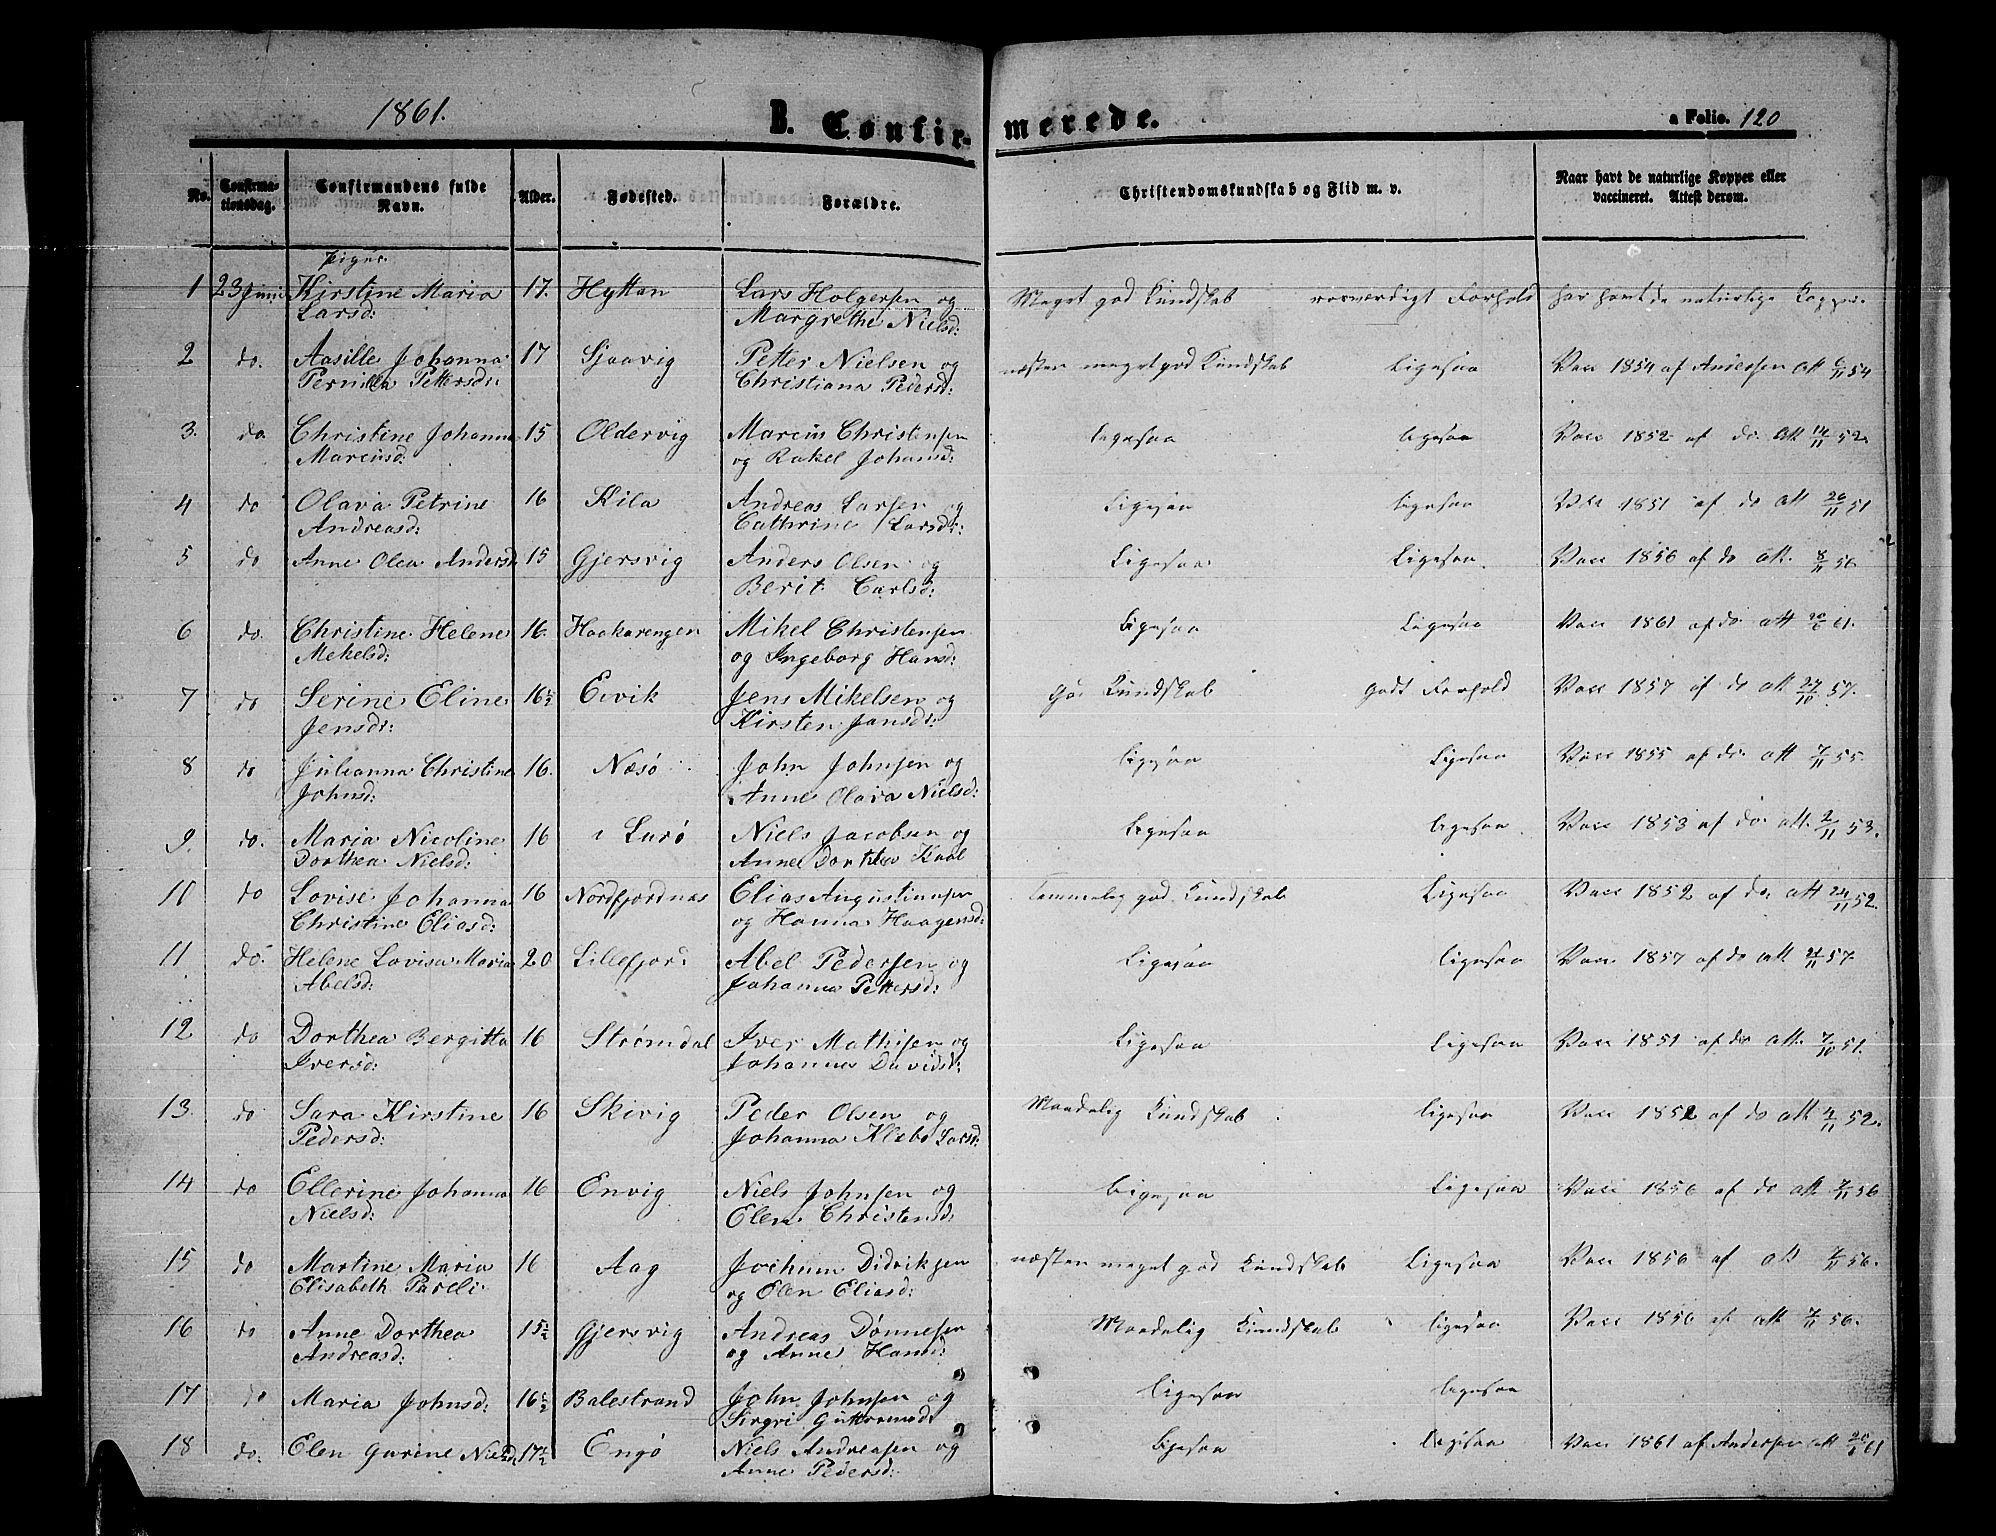 1861.
B. Confir-
merede.
a Folio. 120
No.
Confirma-
tionsdag.
Confirmandens fulde
Navn.
Alder.
Fødested.
Forældre.
Christendomskundskab og Flid m. v.
Naar havt de naturlige Kopper eller
vaccineret. Attest derom.
Piger.
1 23 Juni Kirstine Maria 17. Hyttan Lars Holgersen og Meget god Kundskab rosværdigt Forhold har havt de naturlige Kopper.
Larsd: Margrethe Nielsd:
2 do. Aasille Johanna 17 Sjaavig Petter Nielsen og næsten meget god Kundskab Ligesaa Vacc 1854 af Andersen att 6/11 54
Pernilla Pettersd: Christiana Pedersd:
3. do. Christine Johanna 15 Oldervig Marcus Christensen ligesaa ligesaa Vacc 1852 af do att 14/11 52.
Marcusd: og Rakel Johansd:
4 do Olava Petrine 16 Kila Andreas Larsen og Ligesaa ligesaa Vacc 1851 af do att 26/11 51
Andreasd: Cathrine Larsd:
5 do Anne Olea Andersd 15 Gjersvig Anders Olsen og Ligesaa Ligesaa. Vacc 1856 af do att. 8/11 56
Berit Carlsd:
6 do. Christine Helene 16. Haakarengen Mikel Christensen Ligesaa Ligesaa Vacc 1861 af do att 20/6 61.
Mekelsd: og Ingeborg Hansd:
7 do Serine Eline 16½ Eivik Jens Mikelsen og god Kundskab godt Forhold Vacc 1857 af do att 27/10 57.
Jensd: Kirsten Jansd:
8 do Julianna Christine 16. Næsø John Johnsen og ligesaa Ligesaa Vacc 1855 af do att 7/11 55.
Johnsd: Anne Olava Nielsd:
9. do. Maria Nicoline 16 i Lurø Niels Jacobsen og ligesaa ligesaa. Vacc 1853 af do. att. 2/11 53.
Dorthea Nielsd: Anne Dorthea Kaal
10 do Lovise Johanna 16 Nordfjordnæs Elias Augustinusen Temmelig god Kundskab Ligesaa Vacc 1852 af do. att 24/11 52.
Christine Eliasd: og Hanna Haagensd:
11 do. Helene Lovisa Maria 20 Lillefjord Abel Pedersen og Ligesaa ligesaa Vacc 1857 af do att 21/11 57
Abelsd: Johanna Pettersd:
12. do Dorthea Bergitta 16 Strømdal Iver Mathisen og Ligesaa Ligesaa Vacc 1851 af do att. 7/10 51.
Iversd: Johanna Davidsd:
13. do Sara Kirstine 16 Skivig Peder Olsen og Maadelig Kundskab ligesaa Vacc 1852 af do att 4/11 52.
Pedersd: Johanna Klebo Larsd:
14 do Ellerine Johanna 16 Envig Niels Johnsen og Ligesaa Ligesaa Vacc 1856 af do att 7/11 56
Nielsd: Elen Christensd:
15 do Martine Maria 16 Aag Jochum Didriksen næsten meget god Kundskab Ligesaa Vacc 1856 af att 7/11 56.
Elisabeth Pareli og Elen Eliasd:
16 do Anne Dorthea 15½ Gjersvig Andreas Dønnesen Maadelig Kundskab ligesaa Vacc 1856 af att 7/11 56.
Andreasd: og Anne Hansd:
17 do Maria Johnsd: 16½ Balestrand John Johnsen og ligesaa ligesaa
Sirgri Guttormsd:
18 do. Elen Gurine Nielsd 17½ Engø Niels Andreasen og ligesaa Ligesaa Vacc 1861 af Andersen att 20/6 61
Anne Pedersd: